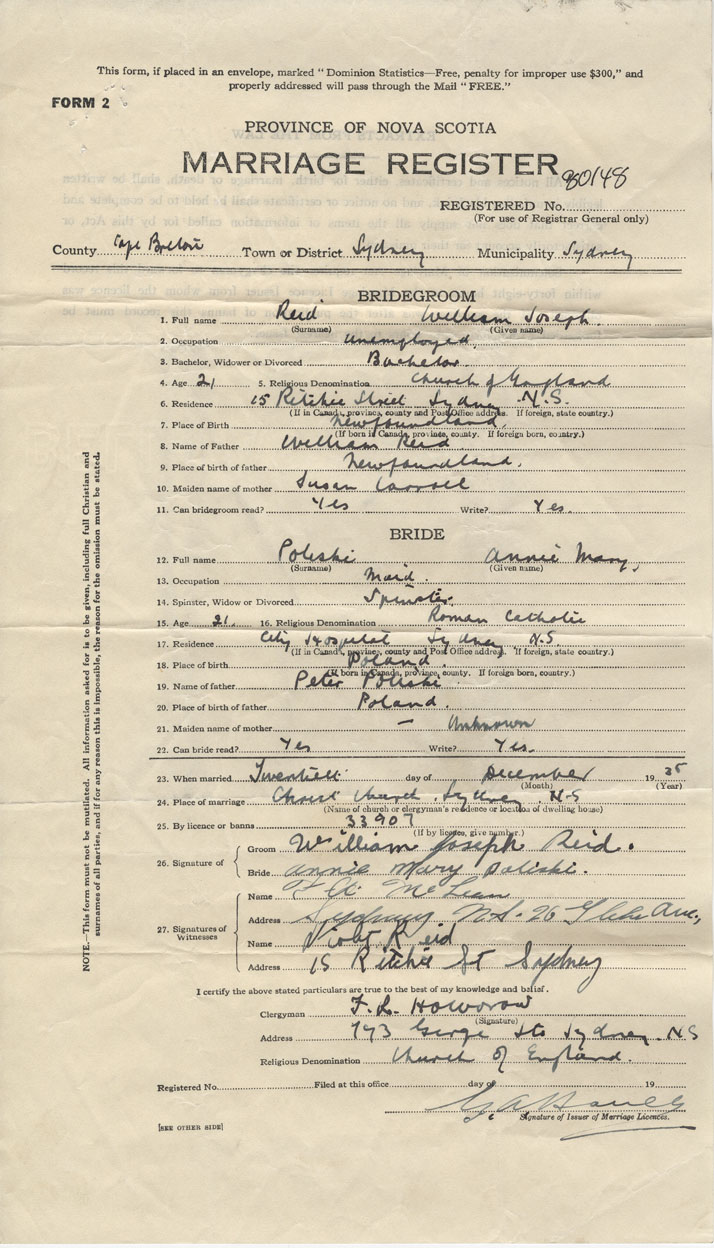 This form, if placed in an envelope, marked "Dominion Statistics—Free, penalty for improper use $300," and
properly addressed will pass through the Mail "FREE."
FORM 2
PROVINCE OF NOVA SCOTIA
MARRIAGE REGISTER
REGISTERED No. 80148
(For use of Registrar General only)
County Cape Breton Town or District Sydney Municipality Sydney
BRIDEGROOM
1. Full name Reid William Joseph.
(Surname) (Given name)
2. Occupation Unemployed.
3. Bachelor, Widower or Divorced Bachelor
4. Age 21 5. Religious Denomination Church of England
6. Residence 15 Ritchie Street Sydney N.S.
(If in Canada, province, county and Post Office address. If foreign, state country.)
7. Place of Birth Newfoundland.
(If born in Canada, province, county. If foreign born, country.)
8. Name of Father William Reid
9. Place of birth of father Newfoundland.
10. Maiden name of mother Susan Carroll
11. Can bridegroom read? Yes Write? Yes.
BRIDE
12. Full name Poliski Annie Mary,
(Surname) (Given name)
13. Occupation Maid.
14. Spinster, Widow or Divorced Spinster.
15. Age 21. 16. Religious Denomination Roman Catholic
17. Residence City Hospital Sydney N.S.
(If in Canada, province, county and Post Office address. If foreign, state country.)
18. Place of birth Poland.
(If born in Canada, province, county. If foreign born, country.)
19. Name of father Peter Poliski
20. Place of birth of father Poland.
21. Maiden name of mother — Unknown
22. Can bride read? Yes Write? Yes.
23. When married Twentieth day of December 1935
(Month) (Year)
24. Place of marriage Christ Church, Sydney N.S
(Name of church or clergyman's residence or location of dwelling house)
25. By licence or banns 33907
(If by licence, give number.)
26. Signature of
Groom William Joseph Reid.
Bride Annie Mary Poliski.
27. Signatures of Witnesses
Name McLean
Address Sydney N.S. 26 Glebe Ave.,
Name Violet Reid
Address 15 Ritchie St Sydney
I certify the above stated particulars are true to the best of my knowledge and belief.
Clergyman F. R.
(Signature)
Address 773 George St. Sydney. NS
Religious Denomination Church of England.
Registered No. Filed at this office day of 19
Signature of Issuer of Marriage Licences.
[SEE OTHER SIDE]
NOTE.—This form must not be mutilated. All information asked for is to be given, including full Christian and
surnames of all parties, and if for any reason this is impossible, the reason for the omission must be stated.